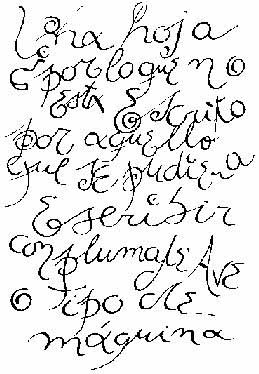 Una hoja
por lo que no
Esta Escrito
por aquello
que se pudiera
Escribir
con pluma de Ave
o Tipo de
máquina